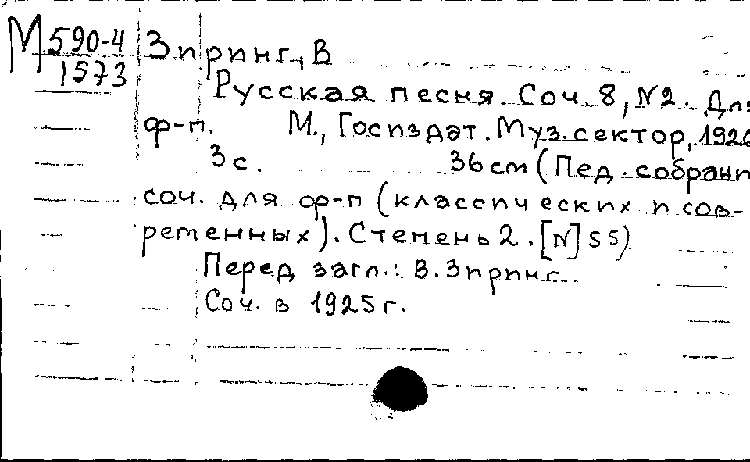 М 590-4
1573
Зиринг, В
Русская песня. Соч. 8, №2. Для
ф-п. М., Госиздат. Муз. сектор, 1926
3 с. 36 см (Пед. собрани
соч. для ф-п (классических и сов-
ременных). Степень 2. [N] 55)
Перед загл.: В. Зиринг.
Соч. в 1925 г.